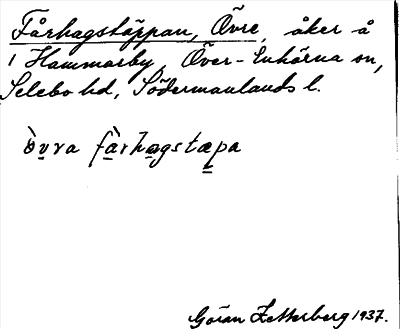 Fårhagstäppan, Övre, åker å
1 Hammarby, Över-Enhörna sn,
Selebo hd, Södermanlands l.
òvra fàrhagstæpa
Göran Zetterberg 1937.